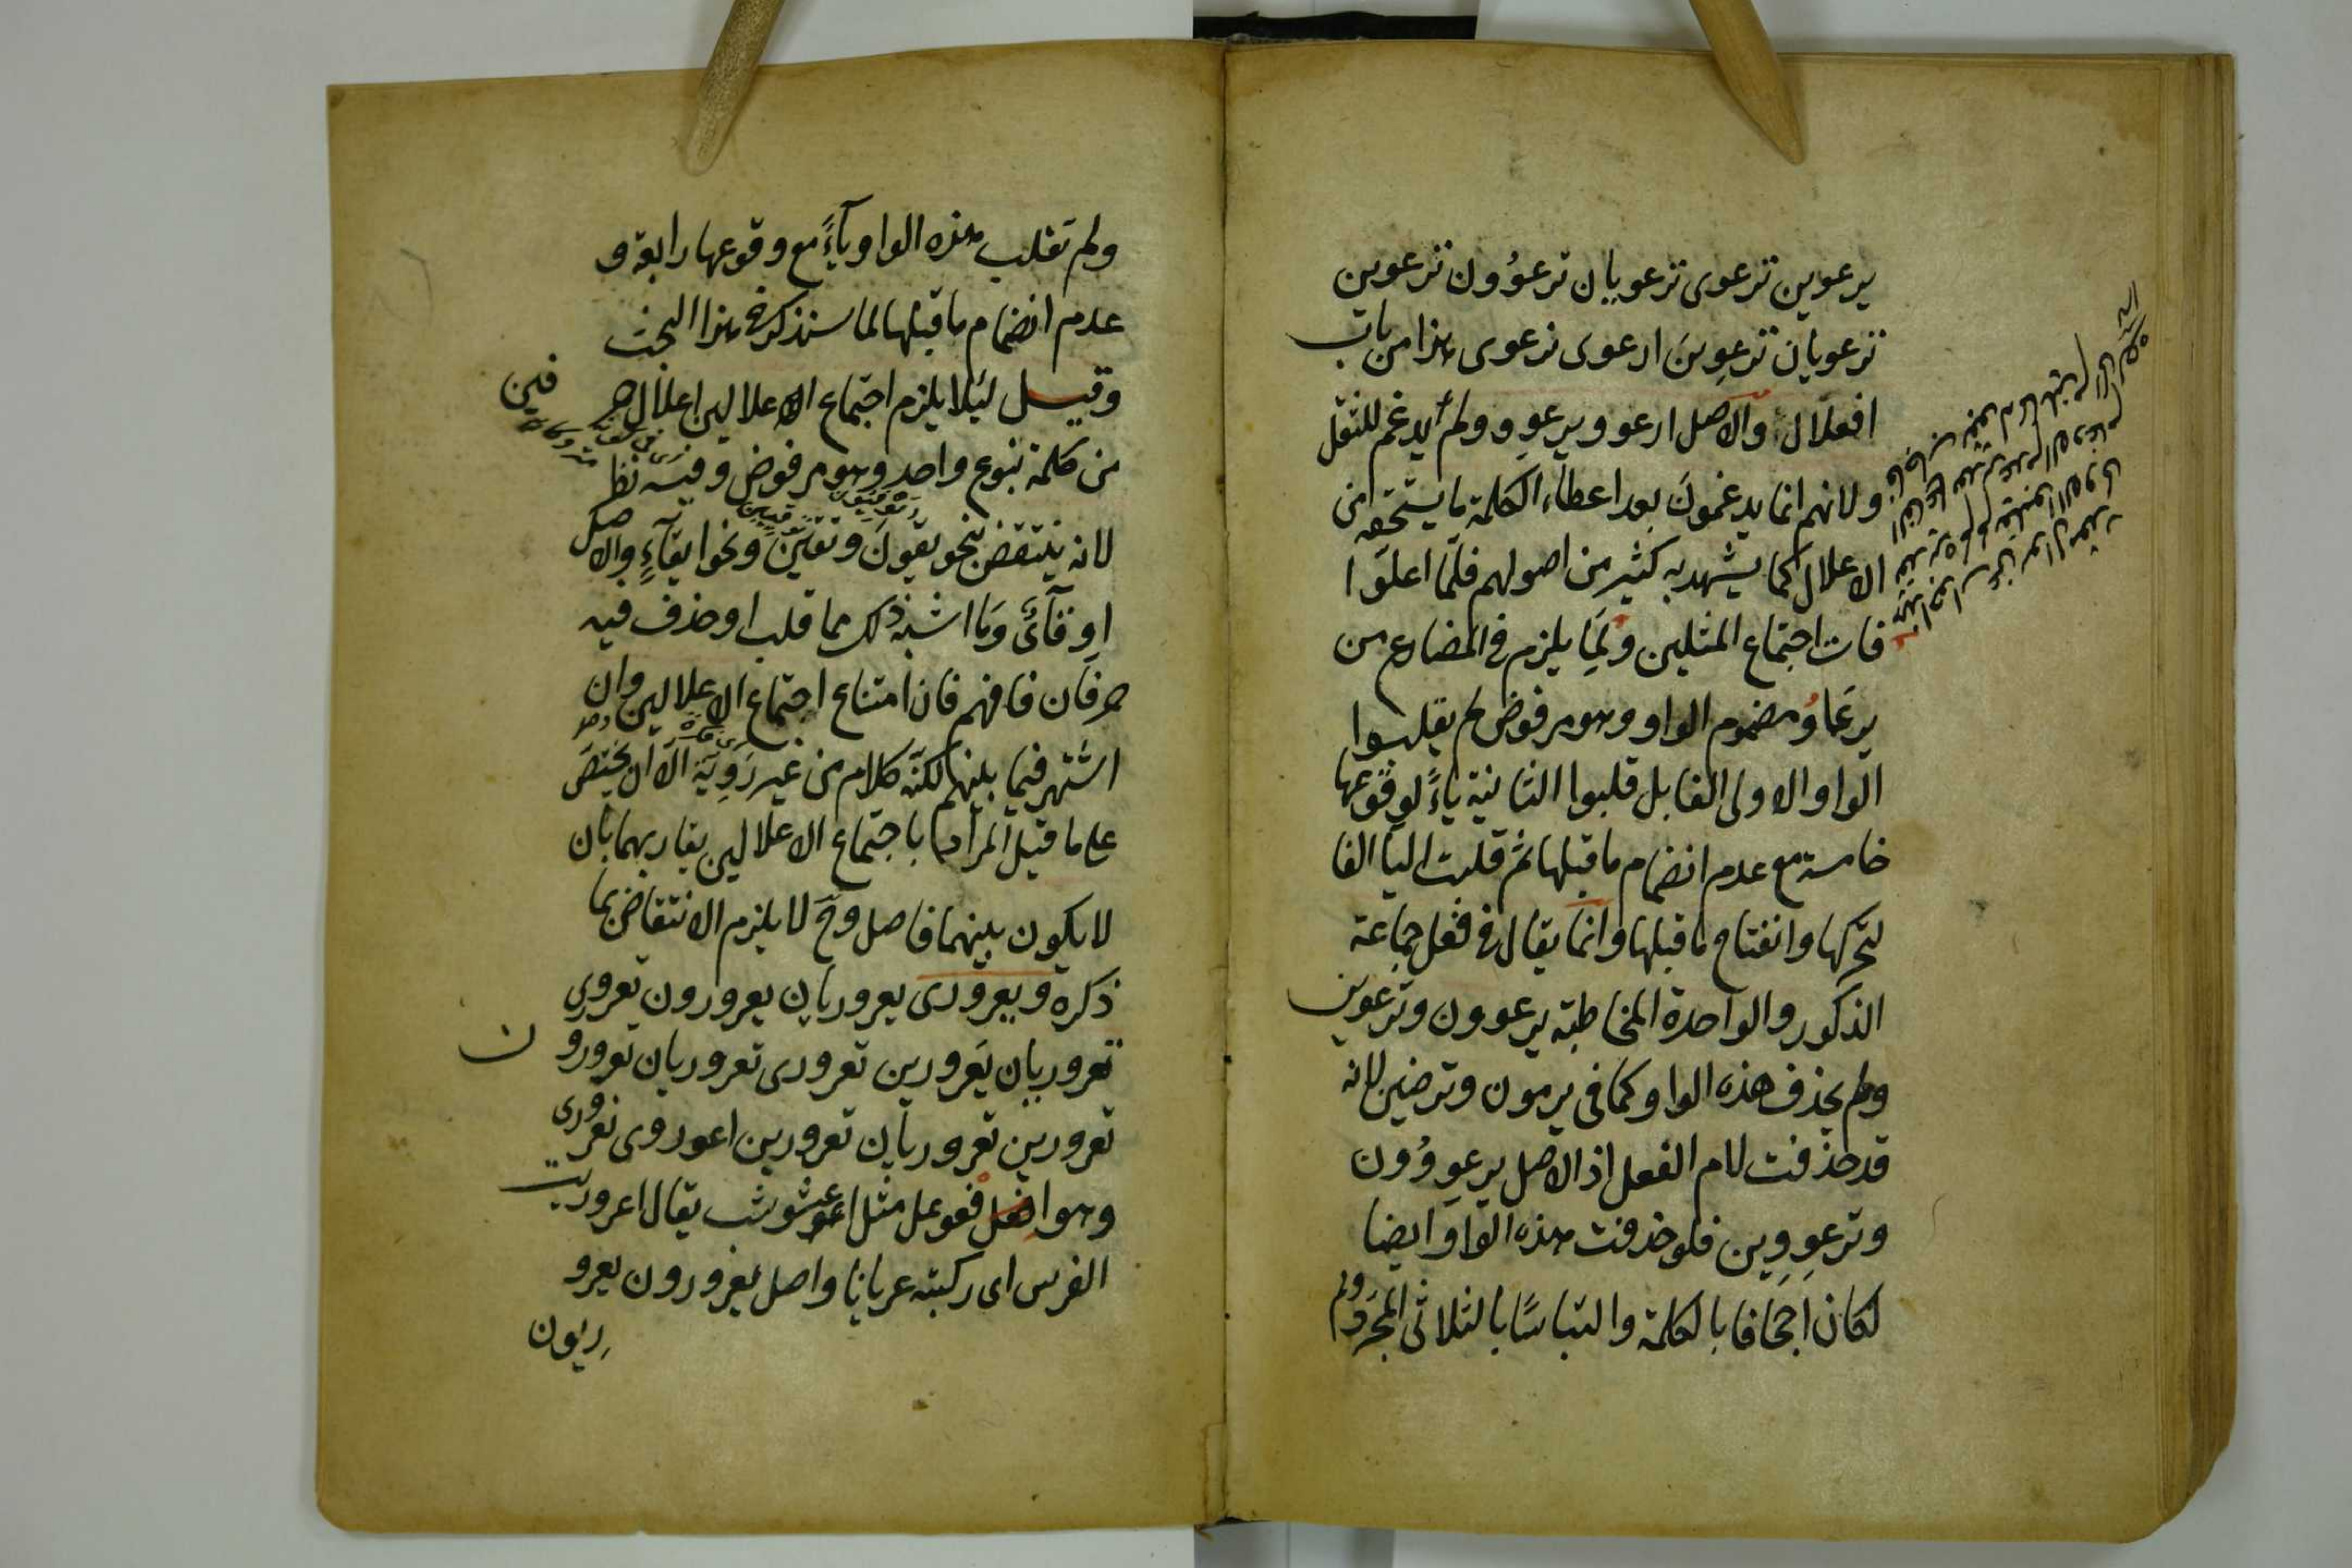 يرعوين ترعوى ترعويان ترعوون ترعوين
ترعويان ترعوين ارعوى نرعوى هذا من باب
افعلال والاصل ارعوو ويرعوو ولم يدغم للثقل
ولانهم انما يدغمون بعد اعطاء الكلمة ما يستحقه من
الاعلال كما يشهد به كثير من اصولهم فلما اعلوا
فات اجتماع المثلين ولما يلزم فى المضارع من
يرعاو مضموم الواو وهو مرفوض لم يقلبوا
الواو الاولى الفا بل قلبوا الثانية ياءً لوقوعها
خامسة مع عدم انضمام ما قبلها ثم قلبت اليا الفا
لتحركها وانفتاح ما قبلها وانما يقال فى فعل جماعة
الذكور والواحدة المخاطبة يرعوون وترعوين
ولم يحذف هذه الواو كما فى يرمون وترضين لانه
قد حذفت لام الفعل اذ الاصل يرعوون
وترعووين فلو حذفت هذه الواو ايضا
لكان اجحافا بالكلمة والتباسًا بالثلاثى المجرد ولم
ولم تقلب هذه الواو ياءً مع وقوعها رابعة و
عدم انضمام ما قبلها لما سنذكر فى هذا البحث
وقيل لئلا يلزم اجتماع الاعلالين اعلال حر فين
من كلمة بنوع واحد وهو مرفوض وفيه نظر
لانه ينتقض بنحو يقون وتقين ونحو ايقاء والاصل
اوقآئ وما اشبه ذلك مما قلب او حذف فيه
حرفان فافهم فان امتناع اجتماع الاعلالين وان
اشتهر فيما بينهم لكنه كلام من غير روية الا ان يختص
على ما قيل المراد باجتماع الاعلالين تقاربهما بان
لا يكون بينهما فاصل وح لا يلزم الانتقاض بما
ذكره ويعرورى يعروريان يعرورون تعرورى
تعروريان يعرورين تعرورى تعروريان تعرورون
تعرورين تعروريان تعرورين اعرورى نعرورى
وهو افعوعل مثل اعشوشب يقال اعروريت
الفرس اى ركبته عريانا واصل يعرورون يعرو
ريون